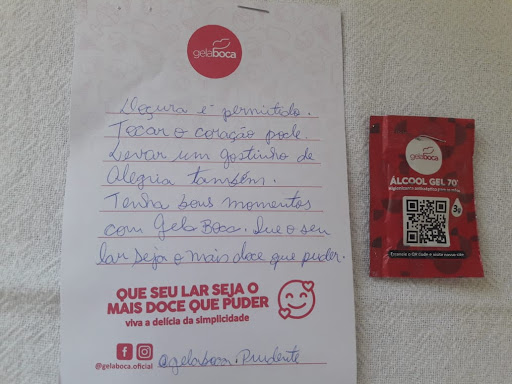 gelaboca
Doçura é permitido.
Tocar o coração pode.
Levar um gostinho de
Alegria também.
Tenha bons momentos
com Gela Boca. Que o seu
lar seja o mais doce que puder.
QUE SEU LAR SEJA O
MAIS DOCE QUE PUDER
viva a delícia da simplicidade
@gelaboca.oficial
@gelaboca.Prudente
gelaboca
ÁLCOOL GEL 70°
3g